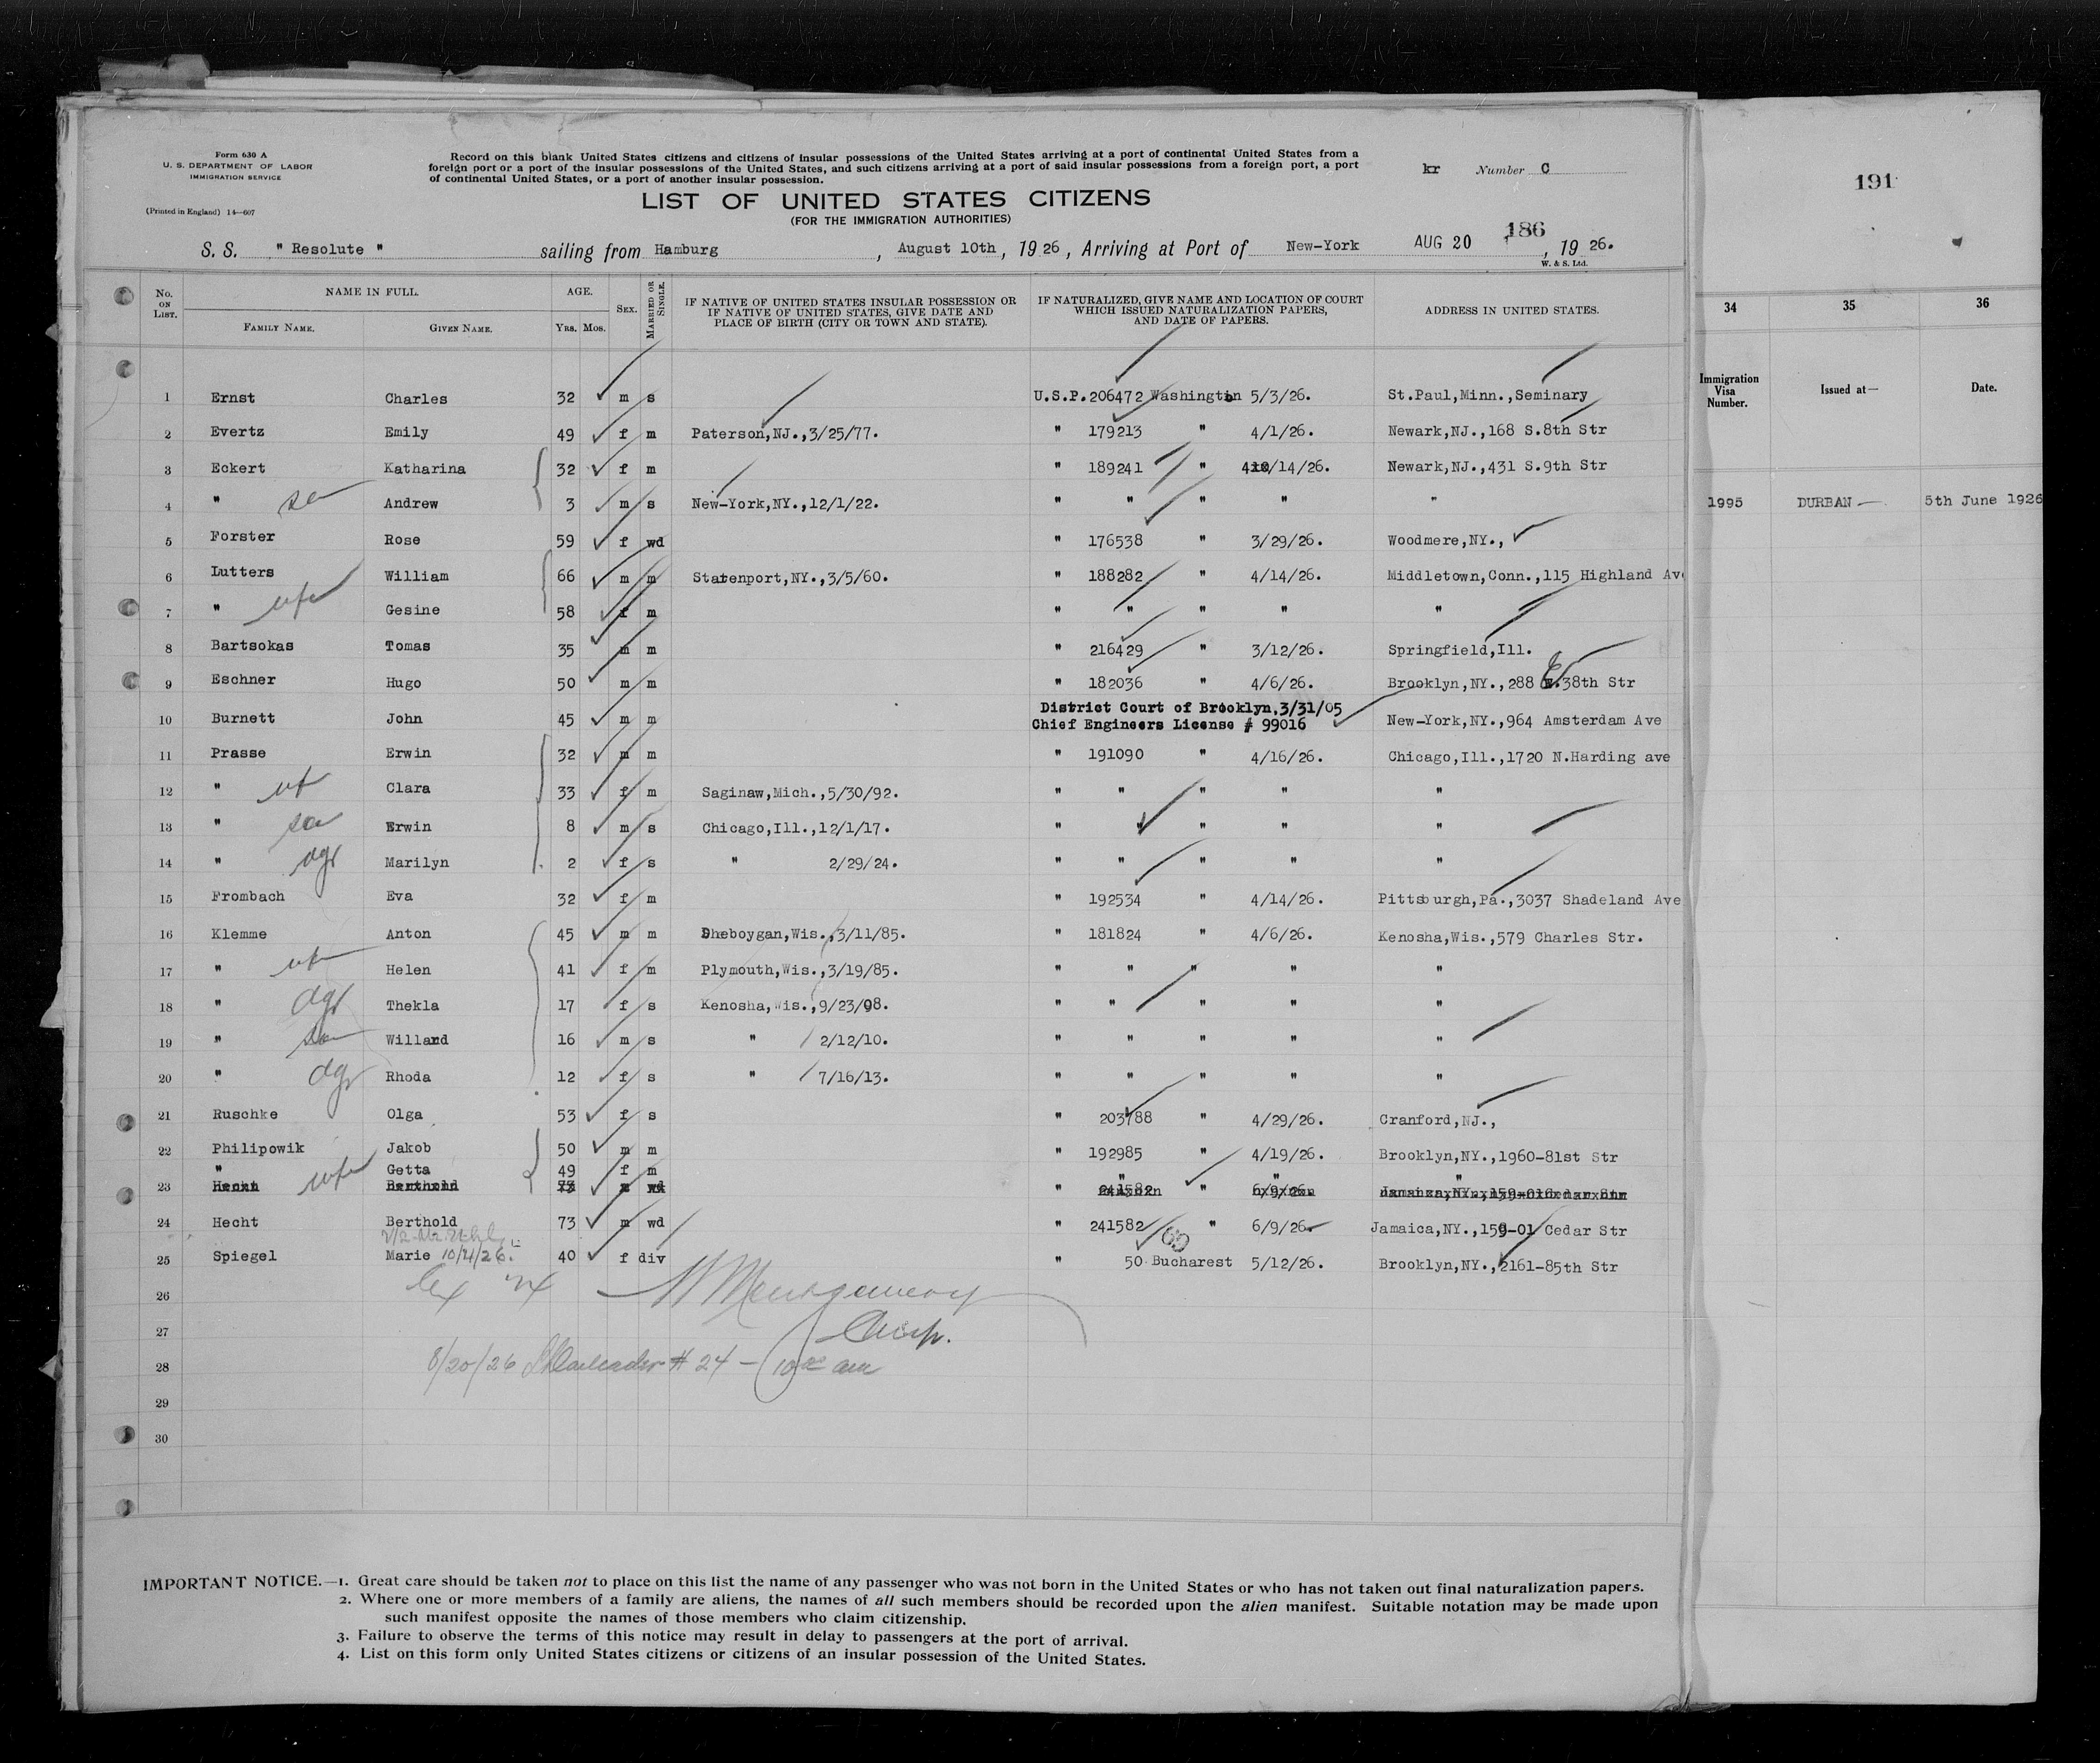 Form 630 A
U. S. DEPARTMENT OF LABOR
IMMIGRATION SERVICE
(Printed in England) 14—607
Record on this blank United States citizens and citizens of insular possessions of the United States arriving at a port of continental United States from a
foreign port or a port of the insular possessions of the United States, and such citizens arriving at a port of said insular possessions from a foreign port, a port
of continental United States, or a port of another insular possession.
kr Number C
191
LIST OF UNITED STATES CITIZENS
(FOR THE IMMIGRATION AUTHORITIES)
186
S. S. " Resolute " sailing from Hamburg , August 10th, 19 26, Arriving at Port of New-York AUG 20 , 19 26.
W. & S. Ltd.
No. ON LIST. NAME IN FULL. FAMILY NAME. GIVEN NAME. AGE. YRS. MOS. SEX. MARRIED OR SINGLE. IF NATIVE OF UNITED STATES INSULAR POSSESSION OR IF NATIVE OF UNITED STATES, GIVE DATE AND PLACE OF BIRTH (CITY OR TOWN AND STATE). IF NATURALIZED, GIVE NAME AND LOCATION OF COURT WHICH ISSUED NATURALIZATION PAPERS, AND DATE OF PAPERS. ADDRESS IN UNITED STATES.
34 35 36
Immigration Visa Number. Issued at— Date.
1 Ernst Charles 32 m s U.S.P.206472 Washington 5/3/26. St.Paul,Minn.,Seminary
2 Evertz Emily 49 f m Paterson,NJ.,3/25/77. " 179213 " 4/1/26. Newark,NJ.,168 S.8th Str
3 Eckert Katharina 32 f m " 189241 " /14/26. Newark,NJ.,431 S.9th Str
4 " Andrew 3 m s New-York,NY.,12/1/22. " " " " "
1995 DURBAN — 5th June 1926
5 Forster Rose 59 f wd " 176538 " 3/29/26. Woodmere,NY.,
6 Lutters William 66 m m Statenport,NY.,3/5/60. " 188282 " 4/14/26. Middletown,Conn.,115 Highland Av
7 " wfe Gesine 58 f m " " " " "
8 Bartsokas Tomas 35 m m " 216429 " 3/12/26. Springfield,Ill.
9 Eschner Hugo 50 m m " 182036 " 4/6/26. Brooklyn,NY.,288 E.38th Str
10 Burnett John 45 m m District Court of Brooklyn,3/31/05 Chief Engineers License # 99016 New-York,NY.,964 Amsterdam Ave
11 Prasse Erwin 32 m m " 191090 " 4/16/26. Chicago,Ill.,1720 N.Harding ave
12 " wf Clara 33 f m Saginaw,Mich.,5/30/92. " " " " "
13 " son Erwin 8 m s Chicago,Ill.,12/1/17. " " " " "
14 " dgr Marilyn 2 f s " 2/29/24. " " " " "
15 Frombach Eva 32 f m " 192534 " 4/14/26. Pittsburgh,Pa.,3037 Shadeland Ave
16 Klemme Anton 45 m m Sheboygan,Wis.,3/11/85. " 181824 " 4/6/26. Kenosha,Wis.,579 Charles Str.
17 " wfe Helen 41 f m Plymouth,Wis.,3/19/85. " " " " "
18 " dgr Thekla 17 f s Kenosha,Wis.,9/23/08. " " " " "
19 " son Willard 16 m s " 2/12/10. " " " " "
20 " dgr Rhoda 12 f s " 7/16/13. " " " " "
21 Ruschke Olga 53 f s " 203788 " 4/29/26. Cranford,NJ.,
22 Philipowik Jakob 50 m m " 192985 " 4/19/26. Brooklyn,NY.,1960-81st Str
" wfe Getta 49 f m " " "
23 Hecht Berthold 73 m wd " 241582 " 6/9/26. Jamaica,NY.,159-01 Cedar Str
24 Hecht Berthold 73 m wd " 241582 " 6/9/26. Jamaica,NY.,159-01 Cedar Str
25 Spiegel Marie 10/4/26. 40 f div " 50 Bucharest 5/12/26. Brooklyn,NY.,2161-85th Str
26 Montgomery
27
28 8/20/26 # 24 — 10 am
29
30
IMPORTANT NOTICE.—1. Great care should be taken not to place on this list the name of any passenger who was not born in the United States or who has not taken out final naturalization papers.
2. Where one or more members of a family are aliens, the names of all such members should be recorded upon the alien manifest. Suitable notation may be made upon
such manifest opposite the names of those members who claim citizenship.
3. Failure to observe the terms of this notice may result in delay to passengers at the port of arrival.
4. List on this form only United States citizens or citizens of an insular possession of the United States.